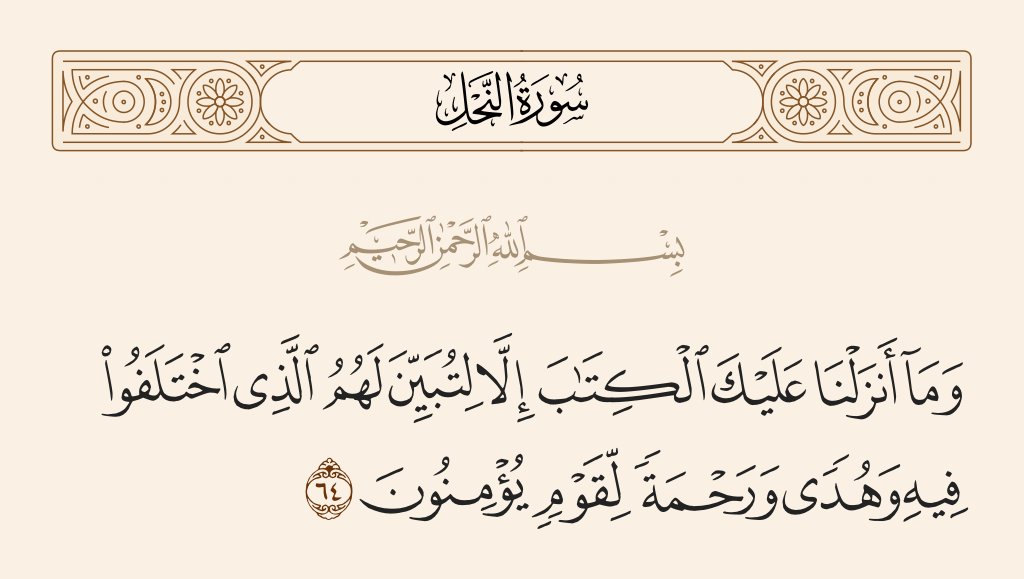 سُورَةُ النَّحْلِ
بِسْمِ ٱللَّهِ ٱلرَّحْمَٰنِ ٱلرَّحِيمِ
وَمَآ أَنزَلْنَا عَلَيْكَ ٱلْكِتَٰبَ إِلَّا لِتُبَيِّنَ لَهُمُ ٱلَّذِى ٱخْتَلَفُوا۟
فِيهِ وَهُدًى وَرَحْمَةً لِّقَوْمٍ يُؤْمِنُونَ ٦٤